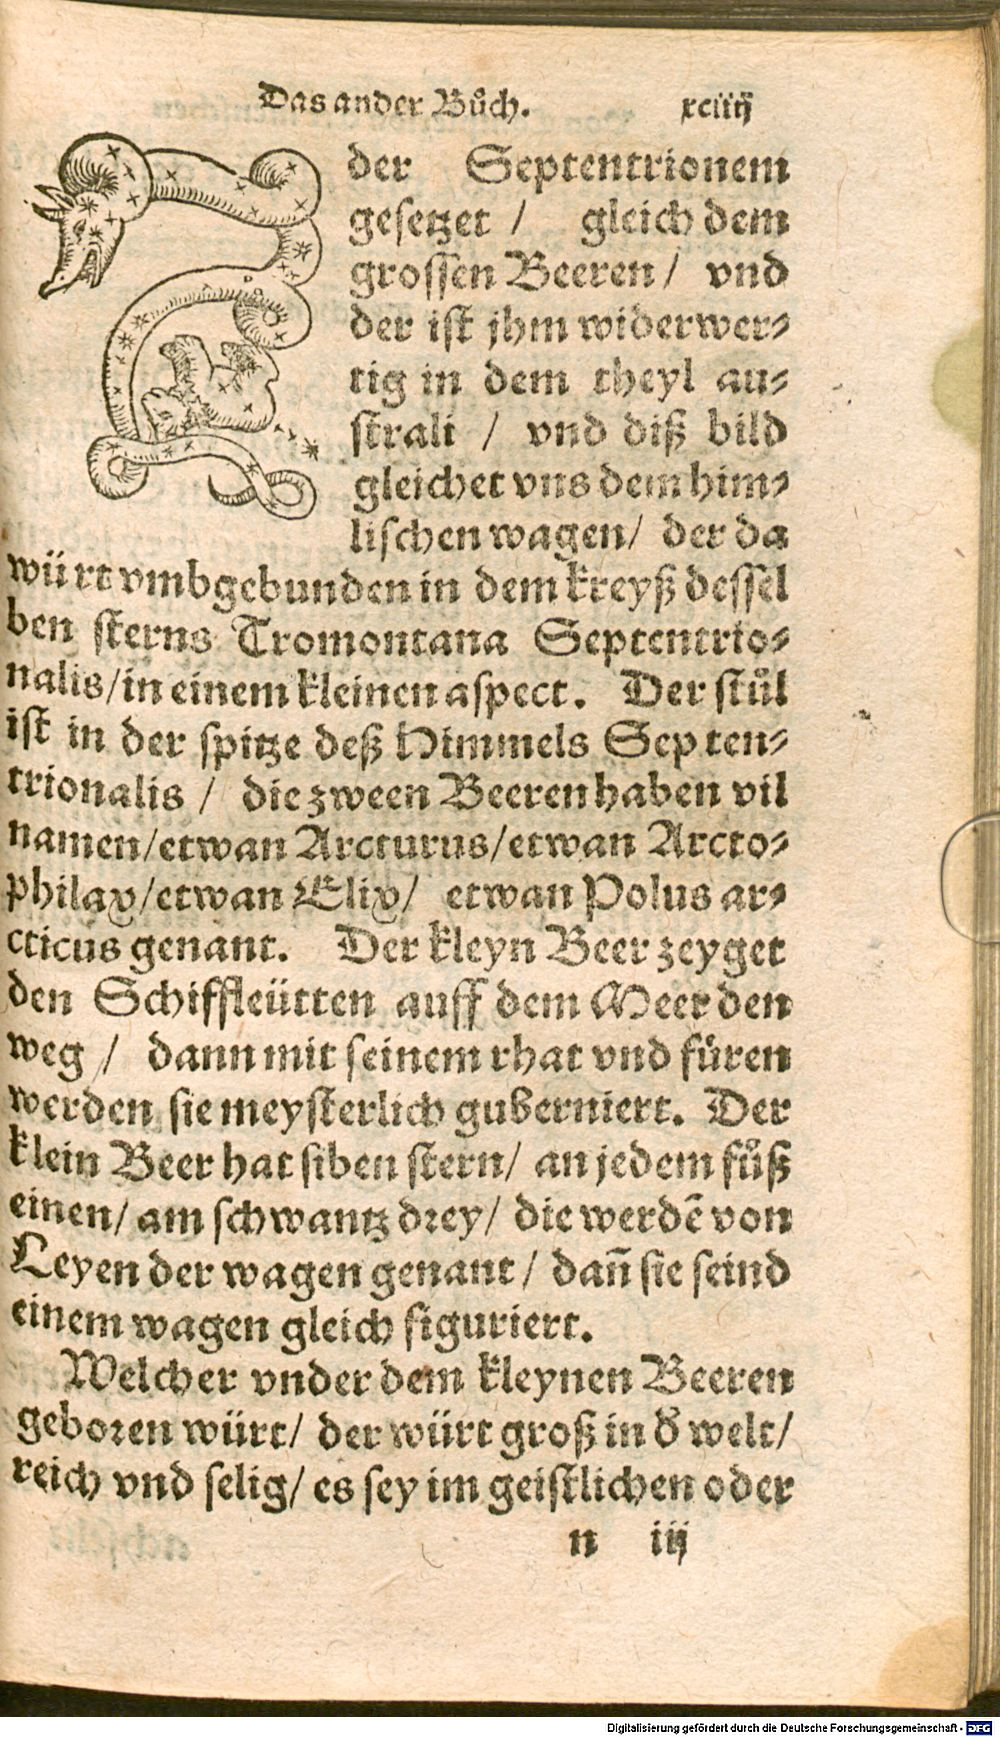 Das ander Bůch. xciiij
der Septentrionem
gesetzet / gleich dem
grossen Beeren / vnd
der ist jhm widerwer⸗
tig in dem theyl au⸗
strali / vnd diß bild
gleichet vns dem him⸗
lischen wagen / der da
würt vmbgebunden in dem kreyß dessel
ben sterns Tromontana Septentrio⸗
nalis / in einem kleinen aspect. Der stůl
ist in der spitze deß Himmels Septen⸗
trionalis / die zween Beeren haben vil
namen / etwan Arcturus / etwan Arcto⸗
philax / etwan Elix / etwan Polus ar⸗
cticus genant. Der kleyn Beer zeyget
den Schiffleütten auff dem Meer den
weg / dann mit seinem rhat vnd fůren
werden sie meysterlich guberniert. Der
klein Beer hat siben stern / an jedem fůß
einen / am schwantz drey / die werdē von
Leyen der wagen genant / dañ sie seind
einem wagen gleich figuriert.
Welcher vnder dem kleynen Beeren
geboren würt / der würt groß in d̃ welt /
reich vnd selig / es sey im geistlichen oder
n iij
Digitalisierung gefördert durch die Deutsche Forschungsgemeinschaft - DFG